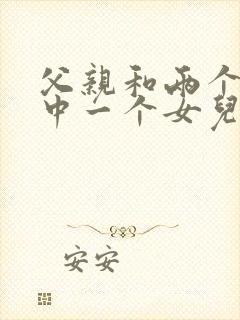 父親和兩个
中一个女兒
安安